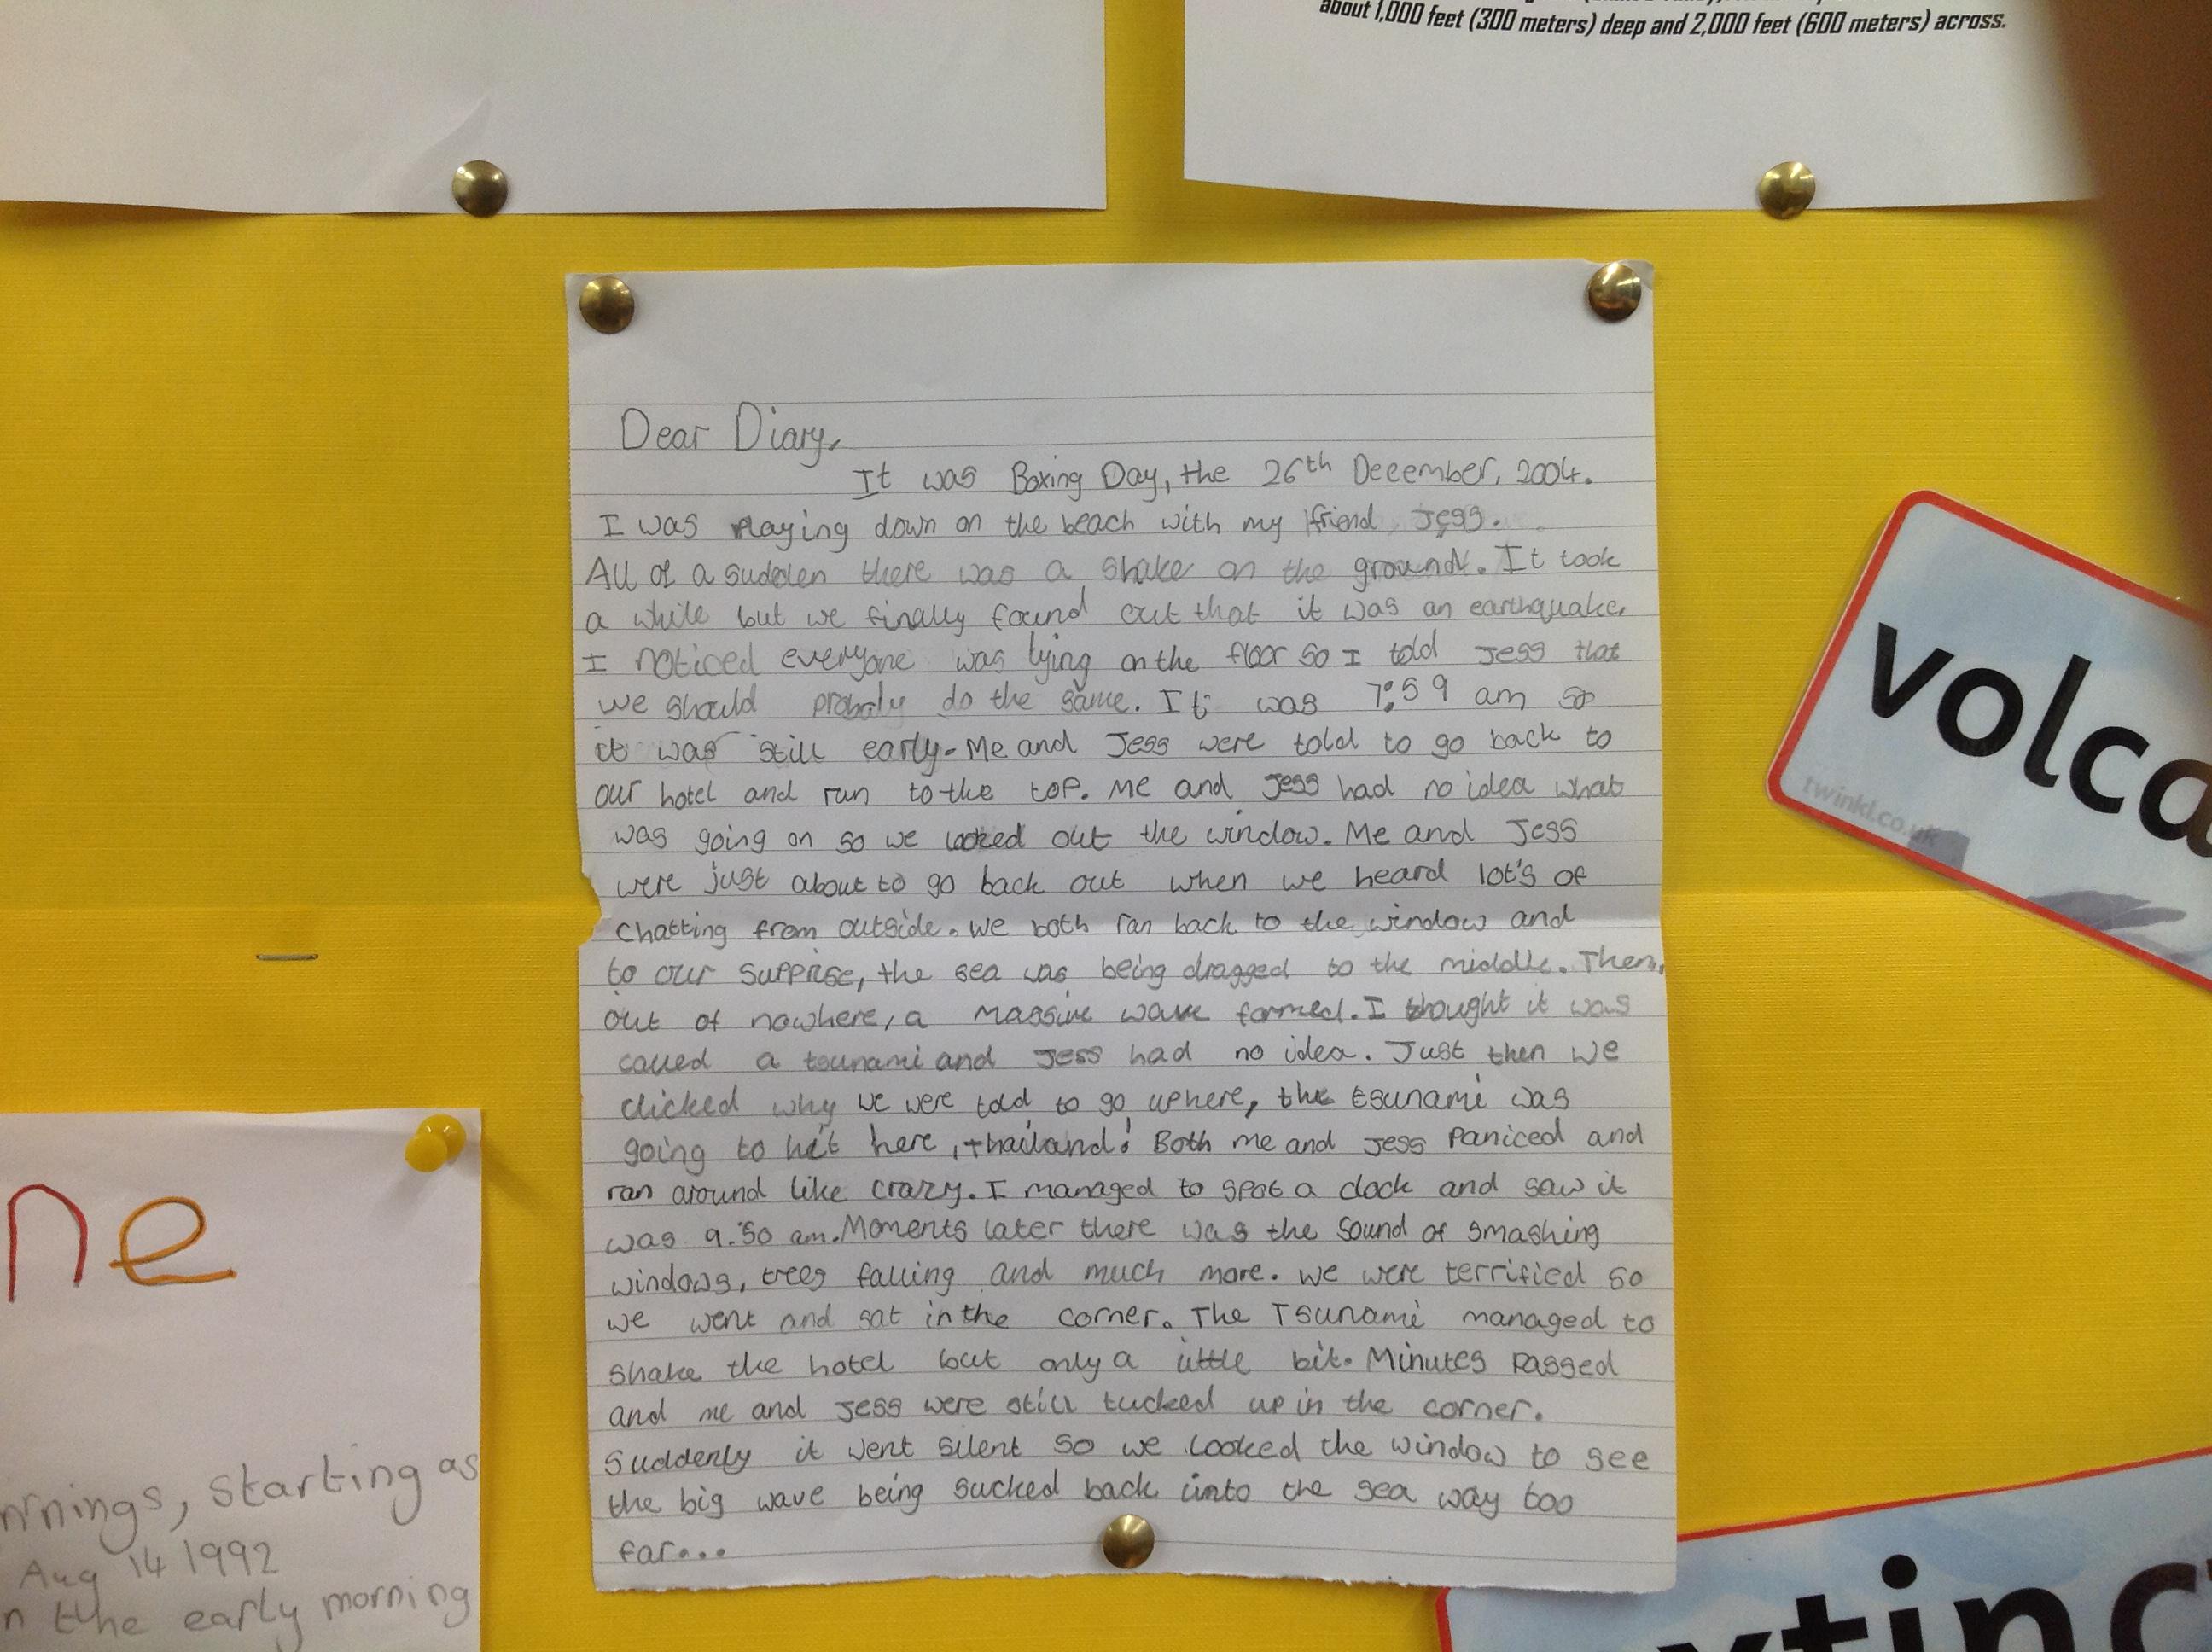 about 1,000 feet (300 meters) deep and 2,000 feet (600 meters) across.
Dear Diary,
It was Boxing Day, the 26th December, 2004.
I was playing down on the beach with my friend Jess.
All of a sudden there was a shake on the ground. It took
a while but we finally found out that it was an earthquake.
I noticed everyone was lying on the floor so I told Jess that
we should probaly do the same. It was 7:59 am so
it was still early. Me and Jess were told to go back to
our hotel and run to the top. Me and Jess had no idea what
was going on so we looked out the window. Me and Jess
were just about to go back out when we heard lot's of
chatting from outside. We both ran back to the window and
to our supprise, the sea was being dragged to the middle. Then,
out of nowhere, a massive wave formed. I thought it was
called a tsunami and Jess had no idea. Just then we
clicked why we were told to go up here, the tsunami was
going to hit here, thailand! Both me and Jess paniced and
ran around like crazy. I managed to spot a clock and saw it
was 9:50 am. Moments later there was the sound of smashing
windows, trees falling and much more. We were terrified so
we went and sat in the corner. The Tsunami managed to
shake the hotel but only a little bit. Minutes passed
and me and Jess were still tucked up in the corner.
Suddenly it went silent so we looked the window to see
the big wave being sucked back into the sea way too
far...
volca
twinkl.co.uk
ne
rnings, starting as
Aug 14 1992
n the early morning
xtinc